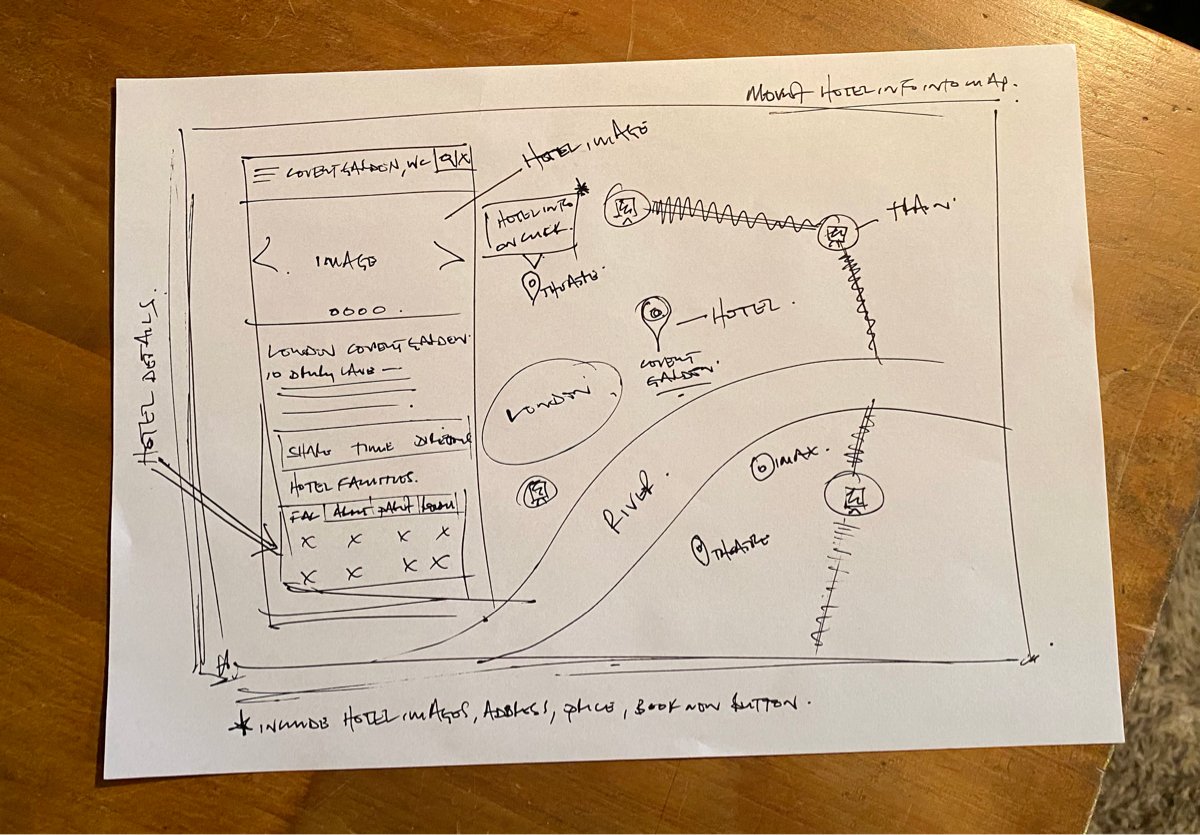 MOVE HOTEL INFO INTO MAP.
HOTEL IMAGE
COVENT GARDEN, WC X
IMAGE
LONDON COVENT GARDEN.
10 DRURY LANE
SHARE TIME
HOTEL FACILITIES.
FAC
X X X X
X X X X
HOTEL DETAILS.
HOTEL INFO
ON CLICK.
*
THEATRE.
TRAIN.
HOTEL.
COVENT
GARDEN.
LONDON
RIVER.
IMAX.
THEATRE
* INCLUDE HOTEL IMAGES, ADDRESS, PRICE, BOOK NOW BUTTON.